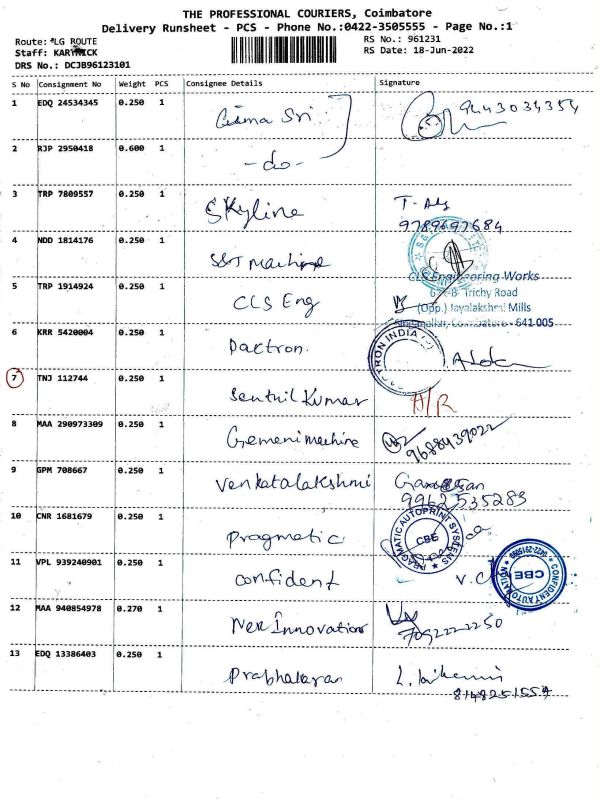 THE PROFESSIONAL COURIERS, Coimbatore
Delivery Runsheet - PCS - Phone No.:0422-3505555 - Page No.:1
Route: LG ROUTE
RS No.: 961231
Staff: KARTHICK
RS Date: 18-Jun-2022
DRS No.: DCJB96123101
S No Consignment No Weight PCS Consignee Details Signature
1 EDQ 24534345 0.250 1 Sri 9443034354
2 RJP 2950418 0.600 1 -do-
3 TRP 7809557 0.250 1 Skyline
9789697684
4 NDD 1814176 0.250 1 SST machine
5 TRP 1914924 0.250 1 CLS Eng
CLS Engineering Works
Trichy Road
(Opp.) Jayalakshmi Mills
Singanallur, Coimbatore - 641 005
6 KRR 5420004 0.250 1 Dactron
TRON INDIA
7 TNJ 112744 0.250 1 Senthil Kumar A/R
8 MAA 290973309 0.250 1 Gemeni machine 9688439022
9 GPM 708667 0.250 1 Venkatalakshmi Ganesan
9962535283
10 CNR 1681679 0.250 1 Pragmatic
PRAGMATIC AUTOPRINT SYSTEMS
CBE
11 VPL 939240901 0.250 1 Confident
CONFIDENT AUTOMATION
CBE
12 MAA 940854978 0.270 1 Nex Innovation
7092222250
13 EDQ 13386403 0.250 1 Prabhakaran
8148251557